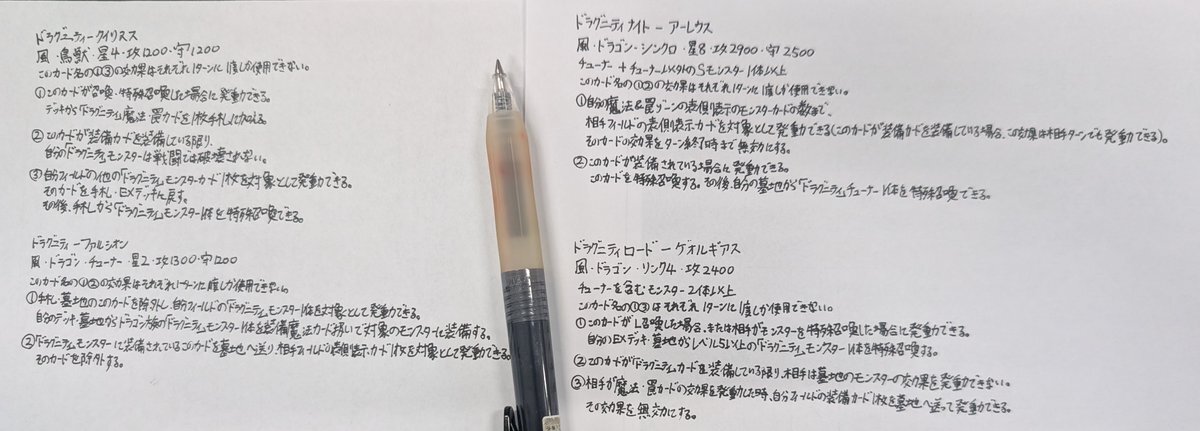 ドラグニティークイリヌス
風・鳥獣・星4・攻1200・守1200
このカード名の①③の効果はそれぞれ1ターンに1度しか使用できない。
①このカードが召喚・特殊召喚した場合に発動できる。
デッキから「ドラグニティ」魔法・罠カードを1枚手札に加える。
②このカードが装備カードを装備している限り、
自分の「ドラグニティ」モンスターは戦闘では破壊されない。
③自分フィールドの他の「ドラグニティ」モンスターカード1枚を対象として発動できる。
そのカードを手札・EXデッキに戻す。
その後、手札から「ドラグニティ」モンスター1体を特殊召喚できる。
ドラグニティーファルシオン
風・ドラゴン・チューナー・星2・攻1300・守1200
このカード名の①②の効果はそれぞれ1ターンに1度しか使用できない。
①手札・墓地のこのカードを除外し、自分フィールドの「ドラグニティ」モンスター1体を対象として発動できる。
自分のデッキ・墓地からドラゴン族の「ドラグニティ」モンスター1体を装備魔法カード扱いで対象のモンスターに装備する。
②「ドラグニティ」モンスターに装備されているこのカードを墓地へ送り、相手フィールドの表側表示カード1枚を対象として発動できる。
そのカードを除外する。
ドラグニティナイトーアーレウス
風・ドラゴン・シンクロ・星8・攻2900・守2500
チューナー+チューナー以外のSモンスター1体以上
このカード名の①②の効果はそれぞれ1ターンに1度しか使用できない。
①自分の魔法&罠ゾーンの表側表示のモンスターカードの数まで、
相手フィールドの表側表示カードを対象として発動できる(このカードが装備カードを装備している場合、この効果は相手ターンでも発動できる)。
そのカードの効果をターン終了時まで無効にする。
②このカードが装備されている場合に発動できる。
このカードを特殊召喚する。その後、自分の墓地から「ドラグニティ」チューナー1体を特殊召喚できる。
ドラグニティロードーゲオルギアス
風・ドラゴン・リンク4・攻2400
チューナーを含むモンスター2体以上
このカード名の①③はそれぞれ1ターンに1度しか使用できない。
①このカードがL召喚した場合、または相手がモンスターを特殊召喚した場合に発動できる。
自分のEXデッキ・墓地からレベル5以上の「ドラグニティ」モンスター1体を特殊召喚する。
②このカードが「ドラグニティ」カードを装備している限り、相手は墓地のモンスターの効果を発動できない。
③相手が魔法・罠カードの効果を発動した時、自分フィールドの装備カード1枚を墓地へ送って発動できる。
その効果を無効にする。